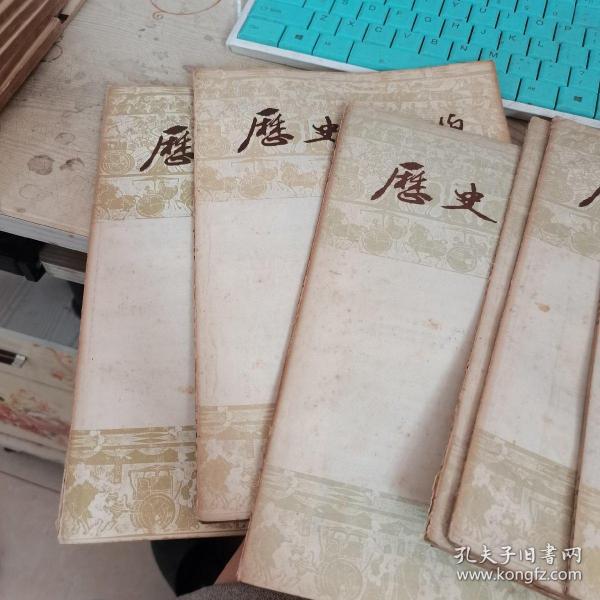 歷
歷史
歷史
孔夫子旧书网
www.kongfz.com